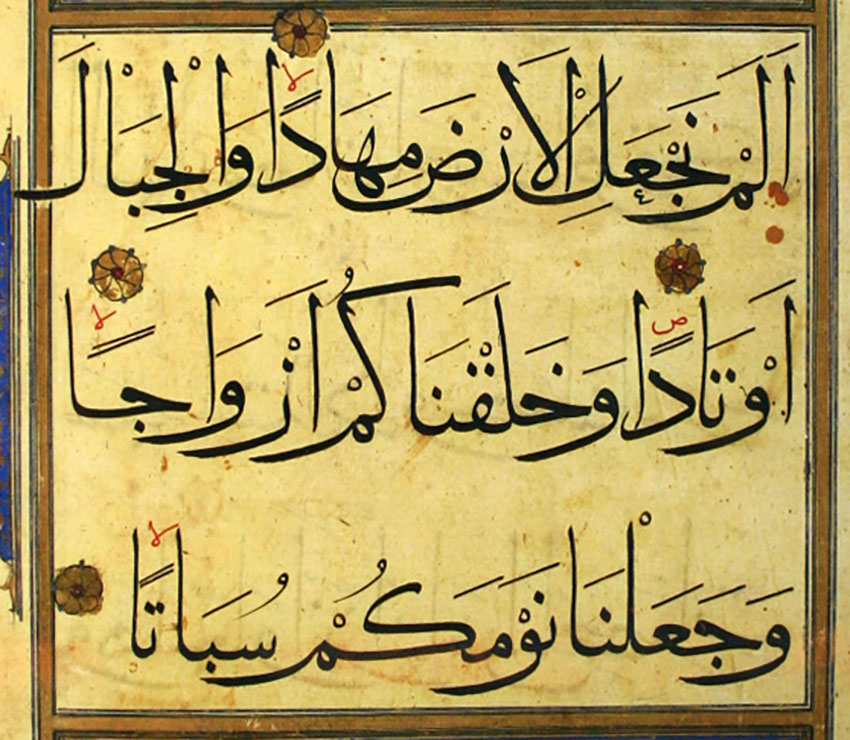 اَلَمْ نَجْعَلِ الْاَرْضَ مِهَادًا ۙ وَالْجِبَالَ
اَوْتَادًا ۖ وَخَلَقْنَاكُمْ اَزْوَاجًا ۙ
وَجَعَلْنَا نَوْمَكُمْ سُبَاتًا ۙ